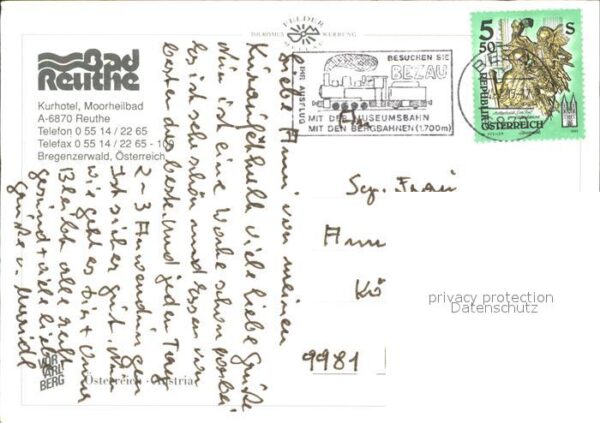 FELDER
TOURISMUS WERBUNG
Bad
Reuthe
Kurhotel, Moorheilbad
A-6870 Reuthe
Telefon 0 55 14 / 22 65
Telefax 0 55 14 / 22 65 - 10
Bregenzerwald, Österreich
BESUCHEN SIE
BEZAU
IHR AUSFLUG
MIT DER MUSEUMSBAHN
MIT DEN BERGBAHNEN (1,700m)
5
50
S
REPUBLIK
ÖSTERREICH
BEZAU
Liebe Anni von meinen
Kuraufenthalt viele liebe Grüße
nun ist eine Woche schon vorbei
Es ist sehr schön und Essen vom
besten das beste, und jeden Tag
2-3 Anwendungen
Ist sicher gut. Nun
wie geht es Dir +
Bleibt alle recht
gesund + viele liebe
Grüße v.
Sg. Frau
Ann
Kö
9981
privacy protection
Datenschutz
VOR
ARL
BERG
Österreich · Austria